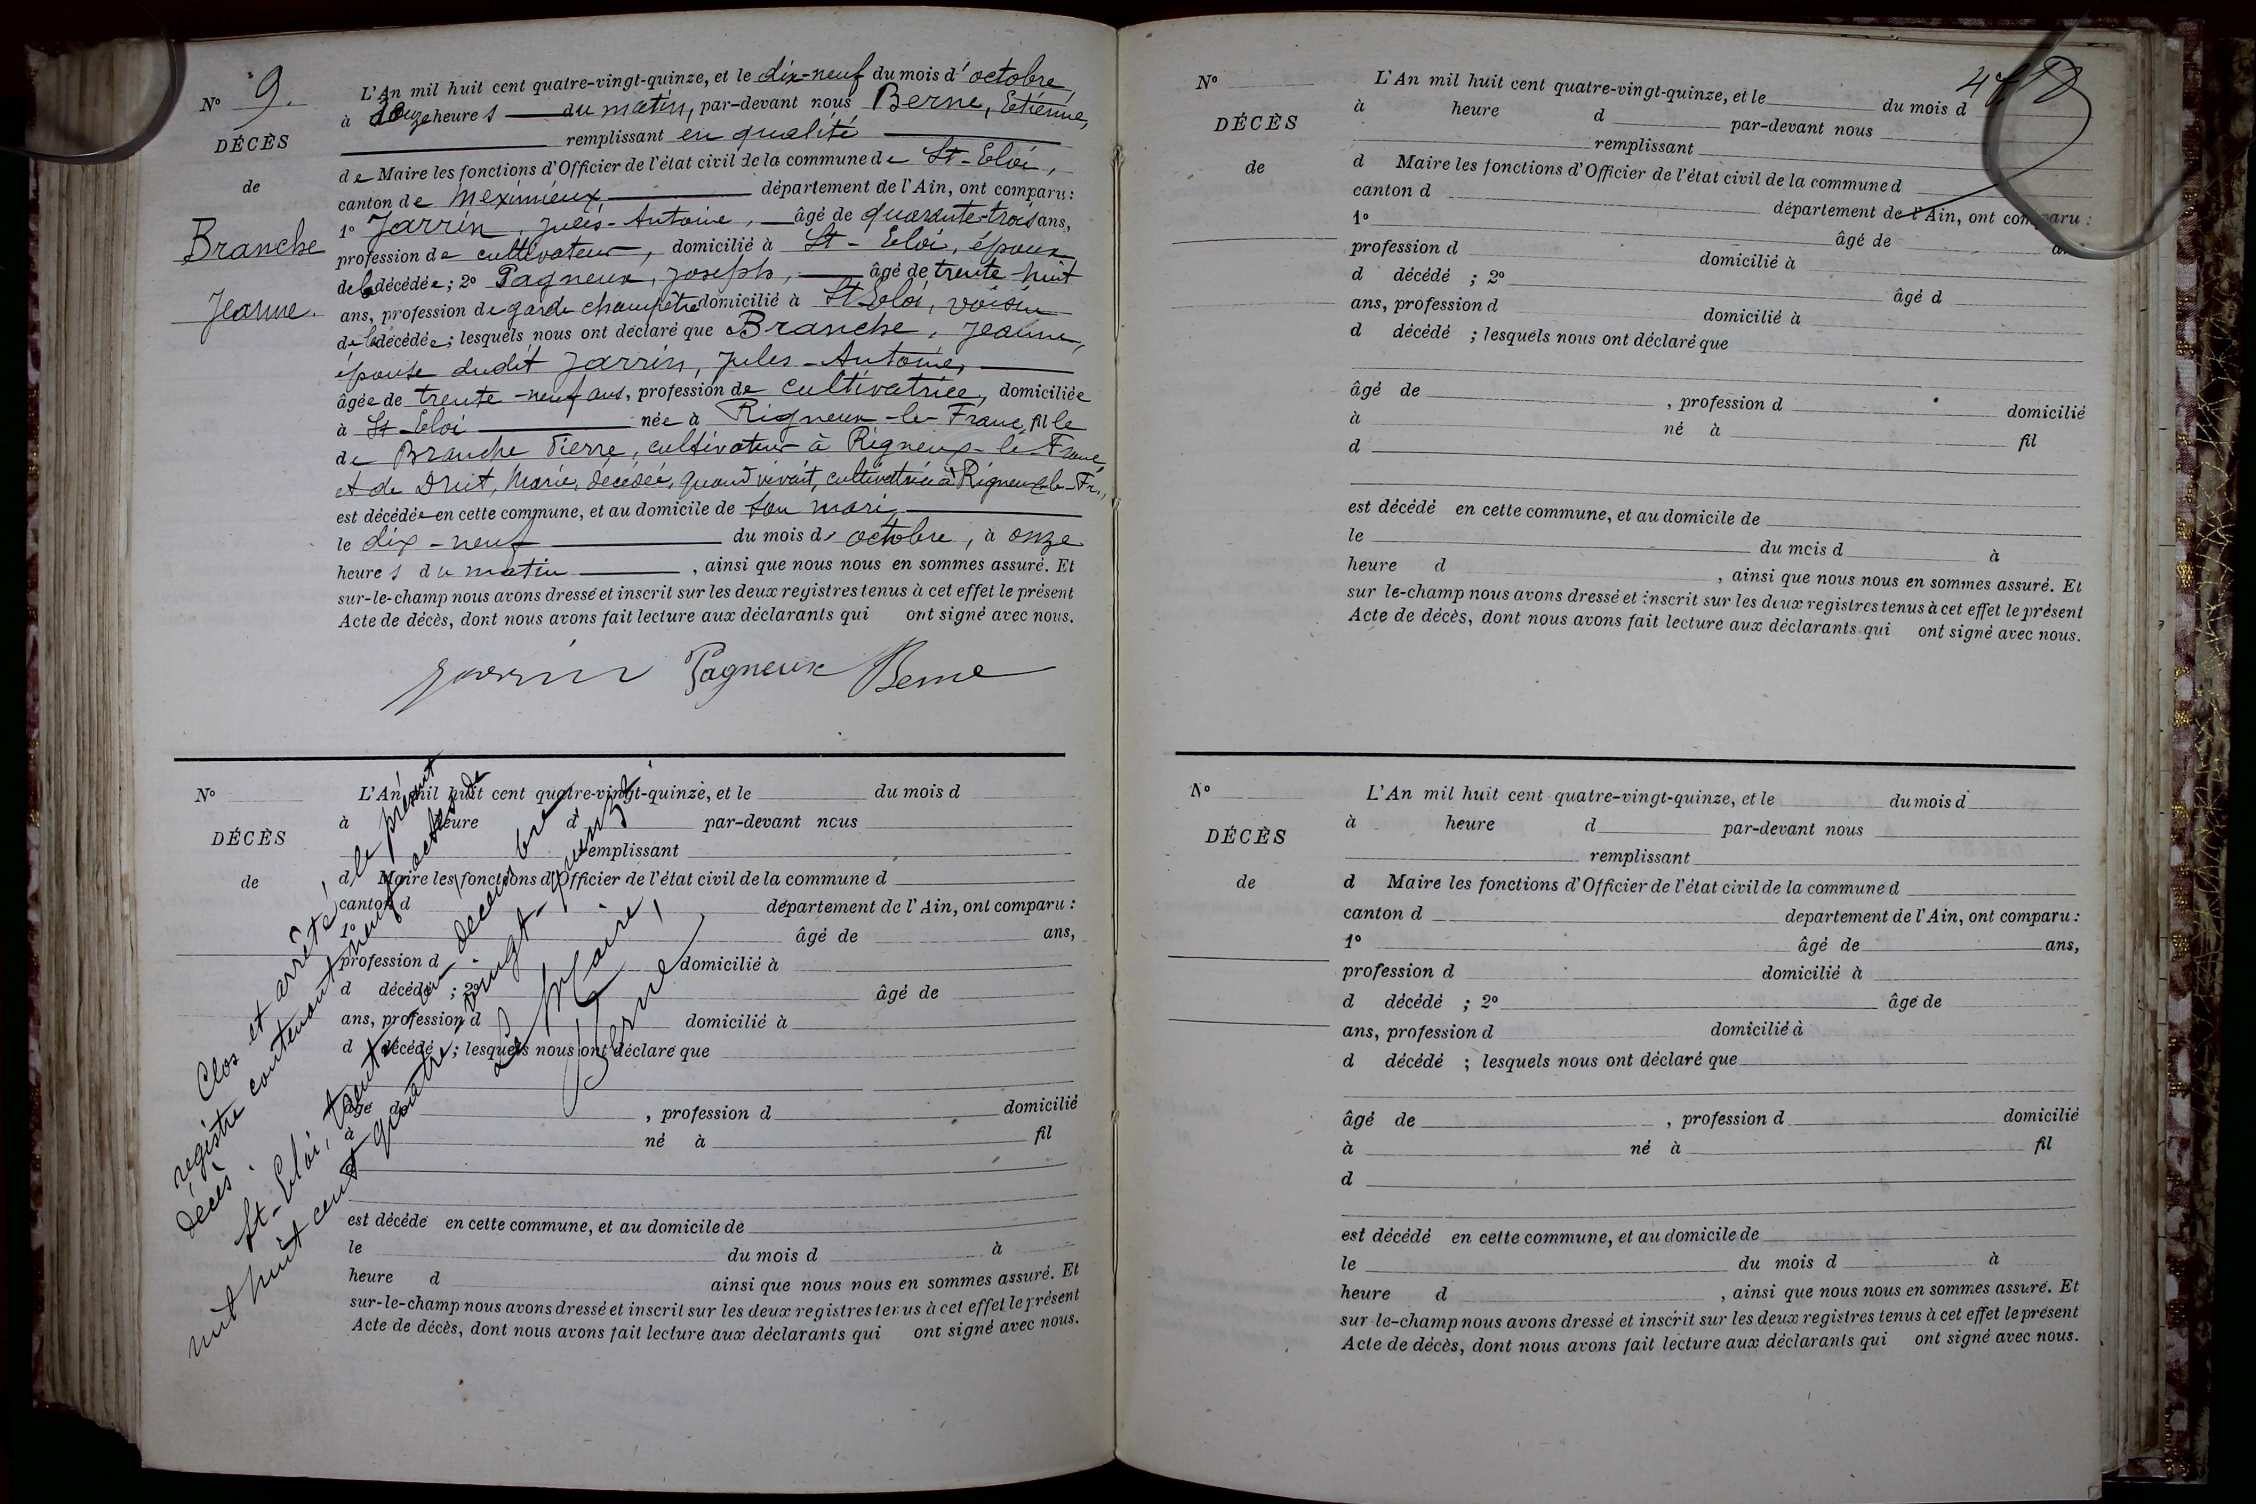 N° 9.
DÉCÈS
de
Branche
Jeanne.
L'An mil huit cent quatre-vingt-quinze, et le dix-neuf du mois d'octobre,
à douze heures du matin, par-devant nous Berne, Etienne,
remplissant en qualité
de Maire les fonctions d'Officier de l'état civil de la commune de St-Eloi,
canton de Meximieux, département de l'Ain, ont comparu :
1° Jarrin, Jules-Antoine, âgé de quarante-trois ans,
profession de cultivateur, domicilié à St-Eloi, époux
de la décédée ; 2° Pagneux, Joseph, âgé de trente-huit
ans, profession de garde champêtre domicilié à St Eloi, voisin
de la décédée ; lesquels nous ont déclaré que Branche, Jeanne,
épouse dudit Jarrin, Jules-Antoine,
âgée de trente-neuf ans, profession de cultivatrice, domiciliée
à St-Eloi née à Rigneux-le-Franc, fille
de Branche Pierre, cultivateur à Rigneux-le-Franc,
et de Druit, Marie, décédée, quand vivait, cultivatrice à Rigneux-le-Fr.,
est décédée en cette commune, et au domicile de son mari,
le dix-neuf du mois d'octobre, à onze
heures du matin, ainsi que nous nous en sommes assuré. Et
sur-le-champ nous avons dressé et inscrit sur les deux registres tenus à cet effet le présent
Acte de décès, dont nous avons fait lecture aux déclarants qui ont signé avec nous.
Jarrin Pagneux Berne
N°
DÉCÈS
de
L'An mil huit cent quatre-vingt-quinze, et le du mois d
à heure d par-devant nous
remplissant
d Maire les fonctions d'Officier de l'état civil de la commune d
canton d département de l'Ain, ont comparu :
1° âgé de ans,
profession d domicilié à
d décédé ; 2° âgé de
ans, profession d domicilié à
d décédé ; lesquels nous ont déclaré que
âgé de , profession d domicilié
à né à fil
d
est décédé en cette commune, et au domicile de
le du mois d à
heure d ainsi que nous nous en sommes assuré. Et
sur-le-champ nous avons dressé et inscrit sur les deux registres tenus à cet effet le présent
Acte de décès, dont nous avons fait lecture aux déclarants qui ont signé avec nous.
Clos et arrêté, le présent
registre contenant neuf actes de
décès.
St-Eloi, trente-un décembre
mil huit cent quatre-vingt-quinze.
Le Maire,
Berne
N°
DÉCÈS
de
L'An mil huit cent quatre-vingt-quinze, et le du mois d
à heure d par-devant nous
remplissant
d Maire les fonctions d'Officier de l'état civil de la commune d
canton d département de l'Ain, ont comparu :
1° âgé de
profession d domicilié à
d décédé ; 2° âgé d
ans, profession d domicilié à
d décédé ; lesquels nous ont déclaré que
âgé de , profession d domicilié
à né à fil
d
est décédé en cette commune, et au domicile de
le du mois d à
heure d , ainsi que nous nous en sommes assuré. Et
sur le-champ nous avons dressé et inscrit sur les deux registres tenus à cet effet le présent
Acte de décès, dont nous avons fait lecture aux déclarants qui ont signé avec nous.
N°
DÉCÈS
de
L'An mil huit cent quatre-vingt-quinze, et le du mois d
à heure d par-devant nous
remplissant
d Maire les fonctions d'Officier de l'état civil de la commune d
canton d departement de l'Ain, ont comparu :
1° âgé de ans,
profession d domicilié à
d décédé ; 2° âgé de
ans, profession d domicilié à
d décédé ; lesquels nous ont déclaré que
âgé de , profession d domicilié
à né à fil
d
est décédé en cette commune, et au domicile de
le du mois d à
heure d , ainsi que nous nous en sommes assuré. Et
sur-le-champ nous avons dressé et inscrit sur les deux registres tenus à cet effet le présent
Acte de décès, dont nous avons fait lecture aux déclarants qui ont signé avec nous.